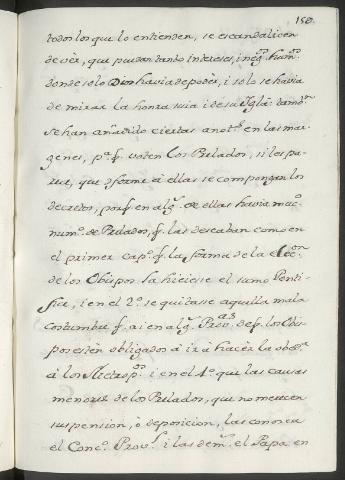 150.
todos los que lo entienden, se escandalicen
de vèr, que puedan tanto intereses, i neg.s hum.s
donde solo Dios havia de podèr, i solo se havia
de mirar la honra suia i de su Igl.a tamb.n
se han añadido ciertas anot.s en las mar-
genes, p.a q. voten los Prelados, si les pa-
rece, que conforme à ellas se compongan los
decretos, porq. en alg.s de ellas havia maior
num.o de Prelados, q. las deseaban como en
el primer cap.o q. la forma de la elec.on
de los Obispos la hiciesse el sumo Ponti-
fice, i en el 2.o se quitasse aquella mala
costumbre q. ai en alg.s Prov.as de q. los Obis-
pos estèn obligados à ir à hacèr la obed.a
à los Metrop.nos i en el 4.o que las causas
menores de los Prelados, que no merecen
suspension, ò deposicion, las conozca
el Conc.o Prov.l i las dem.s el Papa en